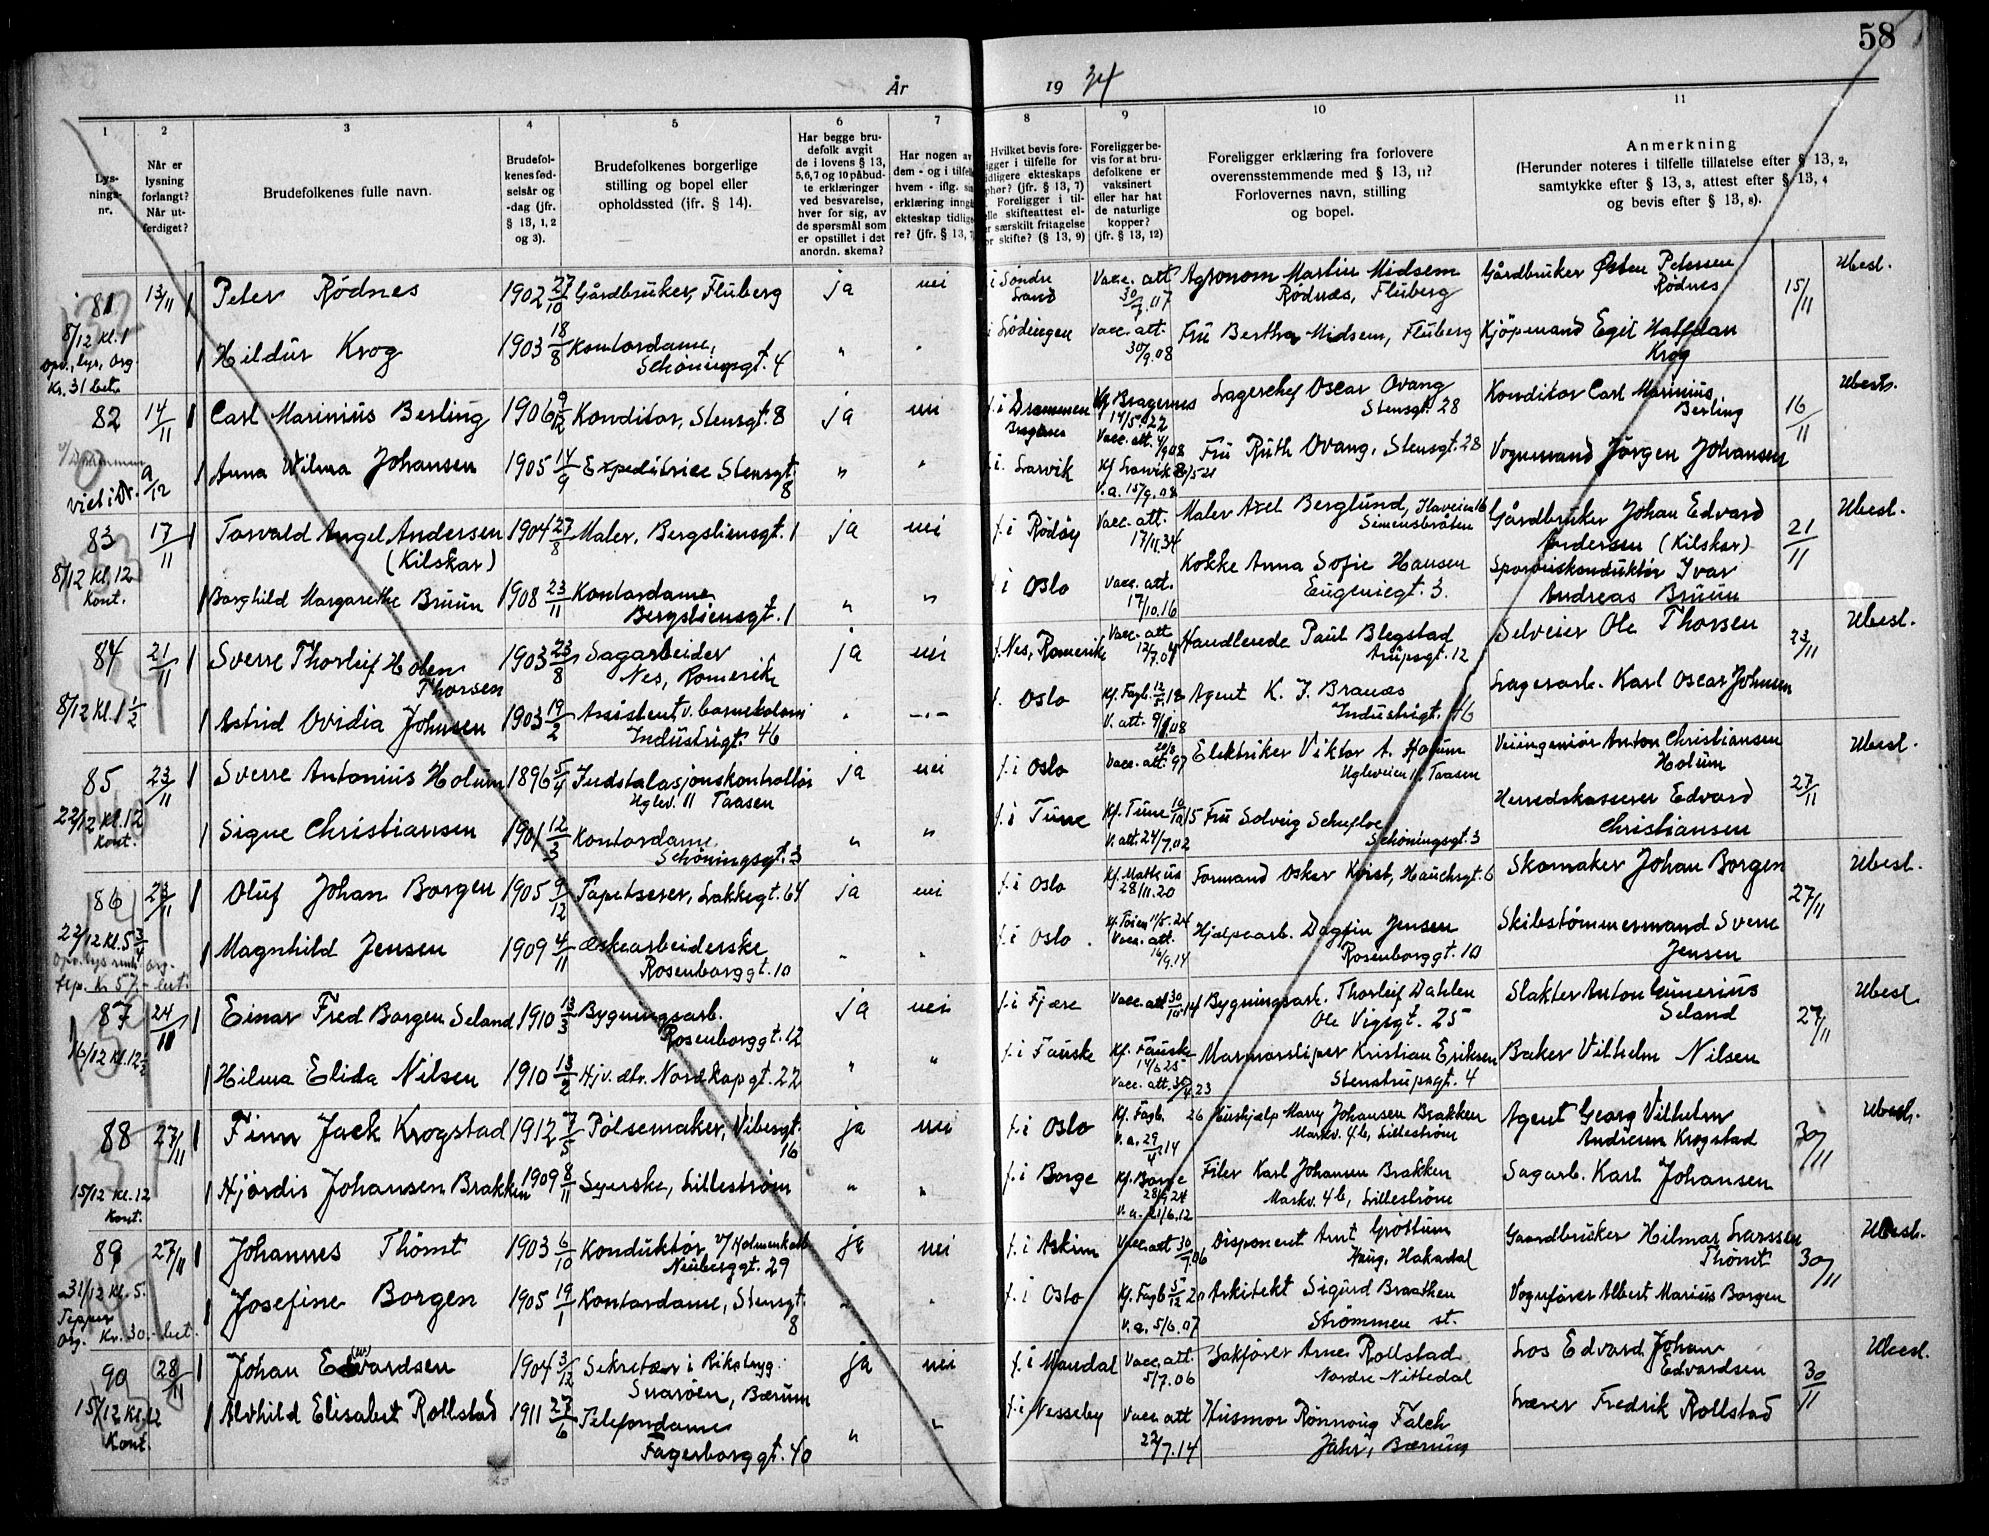 58
År 19 34
1 2 3 4 5 6 7 8 9 10 11
Lys-
nings-
nr.
Når er
lysning
forlangt?
Når ut-
ferdiget?
Brudefolkenes fulle navn.
Brudefol-
kenes fød-
selsår og
-dag (jfr.
§ 13, 1, 2
og 3).
Brudefolkenes borgerlige
stilling og bopel eller
opholdssted (jfr. § 14).
Har begge bru-
defolk avgit
de i lovens § 13,
5,6,7 og 10 påbud-
te erklæringer
ved besvarelse,
hver for sig, av
de spørsmål som
er opstillet i det
anordn. skema?
Har nogen av
dem - og i tilfelle
hvem - iflg. sin
erklæring inngått
ekteskap tidlige-
re? (jfr. § 13, 7
Hvilket bevis fore-
ligger i tilfelle for
tidligere ekteskaps
ophør? (jfr. § 13, 7)
Foreligger i til-
felle skifteattest el-
ler særskilt fritagelse
for skifte? (§ 13, 9)
Foreligger be-
vis for at bru-
defolkene er
vaksinert
eller har hat
de naturlige
kopper?
(jfr. § 13, 12)
Foreligger erklæring fra forlovere
overensstemmende med § 13, 11?
Forlovernes navn, stilling
og bopel.
Anmerkning
(Herunder noteres i tilfelle tillatelse efter § 13, 2,
samtykke efter § 13, 3, attest efter § 13, 4
og bevis efter § 13, 8).
81 13/11 Peter Rödnes 1902 27/10 Gårdbruker, Fluberg ja nei i Søndre Land Vacc. att 30/7.07 Agronom Martin Midsem Rödnæs, Fluberg Gårdbruker Østen Petersen Rödnes 15/11 Ubesl.
8/12 Kl. 1
opv., lys, org
Kr. 31 bet.
Hildur Krog 1903 18/8 Kontordame, Schöningsgt. 4 " " i Lödingen Vacc. att. 30/9.08 Fru Bertha Midsem, Fluberg Kjöpmand Egil Halfdan Krog
82 14/11 Carl Marinius Berling 1906 9/12 Konditor, Stensgt. 8 ja nei f. i Drammen Bragernes Kf Bragernes 14/5.22 Vacc. att. 4/9 08 Lagerchef Oscar Ovang Stensgt. 28 Konditor Carl Marinius Berling 16/11 Ubesl.
viet i Dr. 9/12
Anna Wilma Johansen 1905 14/9 Expeditrice Stensgt. 8 " " f. i. Larvik Kf Larvik 8/5 21 V. a. 15/9.08 Fru Ruth Ovang, Stensgt. 28 Vognmand Jörgen Johansen
83 17/11 Torvald Angel Andersen (Kilskar) 1904 27/8 Maler, Bergsliensgt. 1 ja nei f. i Rödöy Vacc. att. 17/11.34 Maler Axel Berglund, Simensbråten Gårdbruker Johan Edvard Andersen (Kilskar) 21/11 Ubesl.
8/12 Kl. 12
Kont.
Borghild Margarethe Bruun 1908 23/11 Kontordame Bergsliensgt. 1 " " f. i Oslo Vacc. att. 17/10.16 Kokke Anna Sofie Hansen Eugeniegt. 3. Sporveiskonduktör Ivar Andreas Bruun
84 21/11 Sverre Thorleif Holen Thorsen 1903 23/8 Sagarbeider Nes, Romerike ja nei f. Nes, Romerike Vacc. att 12/7.04 Handlende Paul Blegstad Arupsgt. 12 Selveier Ole Thorsen 23/11 Ubesl.
8/12 Kl. 1 1/2
Astrid Ovidia Johnsen 1903 19/2 Assistent v. barnekoloni Industrigt. 46 " - " - f. Oslo Kf. Fagb. 12/5.18 V. att. 9/1.08 Agent K. J. Branæs Industrigt. 46 Lagerarb. Karl Oscar Johnsen
85 23/11 Sverre Antonius Holum 1896 5/4 Indstalasjonskontrollör Uglev. 11 Taasen ja nei f. i Oslo Vacc. att. 97 Elektriker Viktor A. Holum Ugleveien 11. Taasen Veiingeniör Anton Christiansen Holum 27/11 Ubesl.
22/12 Kl. 12
Kont.
Signe Christiansen 1901 12/3 Kontordame Schöningsgt. 3 " " f. i Tune Kf. Tune 10/10 15 V. att. 24/7.02 Fru Solveig Schefloe Schöningsgt. 3 Herredskasserer Edvard Christiansen
86 23/11 Oluf Johan Borgen 1905 9/12 Tapetserer, Lakkegt. 64 ja nei f. i Oslo Kf. Matheus 28/11.20 Formand Oskar Kvist, Hauchsgt. 6 Skomaker Johan Borgen 27/11 Ubesl.
22/12 Kl. 5 3/4
tep. Kr 57.- bet.
Magnhild Jensen 1909 4/11 Æskearbeiderske Rosenborggt. 10 " " f. i Oslo Kf. Töien 11/5.24 Vacc. att. 16/9.14 Hjælpearb. Dagfin Jensen Rosenborggt. 10 Skibstömmermand Sverre Jensen
87 24/11 Einar Fred Borgen Seland 1910 13/3 Bygningsarb. Rosenborggt. 12 ja nei f. i Fjære Vacc. att 30/10.14 Bygningsarb. Thorleif Dahlen Ole Vigsgt. 25 Slakter Anton Gunerius Seland 27/11 Ubesl
26/12 Kl. 12 1/2
Hilma Elida Nilsen 1910 13/2 Hj.v. dtr. Nordkapgt. 22 " " f. i Fauske Kf. Fauske 14/6 25 Vacc. att. 30/4.23 Marmorsliper Kristian Eriksen Stenstrupsgt. 4 Baker Vilhelm Nilsen
88 27/11 Finn Jack Krogstad 1912 7/5 Pölsemaker, Vibesgt. 16 ja nei f. i Oslo Kf. Fagb. 26 V. a. 29/4.14 Hushjælp Marry Johansen Brakken Markv. 4b, Lilleström Agent Georg Vilhelm Andresen Krogstad 30/11 Ubesl.
15/12 Kl. 12
Kont.
Hjördis Johansen Brakken 1909 8/11 Syerske, Lilleström " " f. i Borge Kf. Borge 28/9.24 V. a. 21/6.12 Filer Karl Johansen Brakken Markv. 4b, Lilleström Sagarb. Karl Johansen
89 27/11 Johannes Thömt 1903 6/10 Konduktör, v/ Holmenkolb. Neuberggt. 29 ja nei f. i Askim Vacc. att 30/9.06 Disponent Arnt Gröttum Haug, Hakadal Gaardbruker Hilmar Larssen Thömt 30/11 Ubesl.
31/12 Kl. 5.
Tepper
org. Kr. 30.- bet.
Josefine Borgen 1905 19/1 Kontordame, Stensgt. 8 " " f. i Oslo Kf. Fagb 5/12 20 V. a. 5/6.07 Arkitekt Sigurd Braathen Strömmen st. Vognförer Albert Marius Borgen
90 28/11 Johan Edvardsen 1904 3/12 Sekretær i Rikstryg. Snaröen, Bærum ja nei f. i Mandal Vacc. att. 5/7.06 Sakförer Arne Rollstad Nordre Nittedal Los Edvard Johan Edvardsen 30/11 Ubesl.
15/12 Kl. 12
Kont.
Alvhild Elisabet Rollstad 1911 27/6 Telefondame Fagerborggt. 40 " " f. i Nesseby Vacc. att 22/7.14 Husmor Rönnaug Falch Jahr, Bærum Lærer Fredrik Rollstad